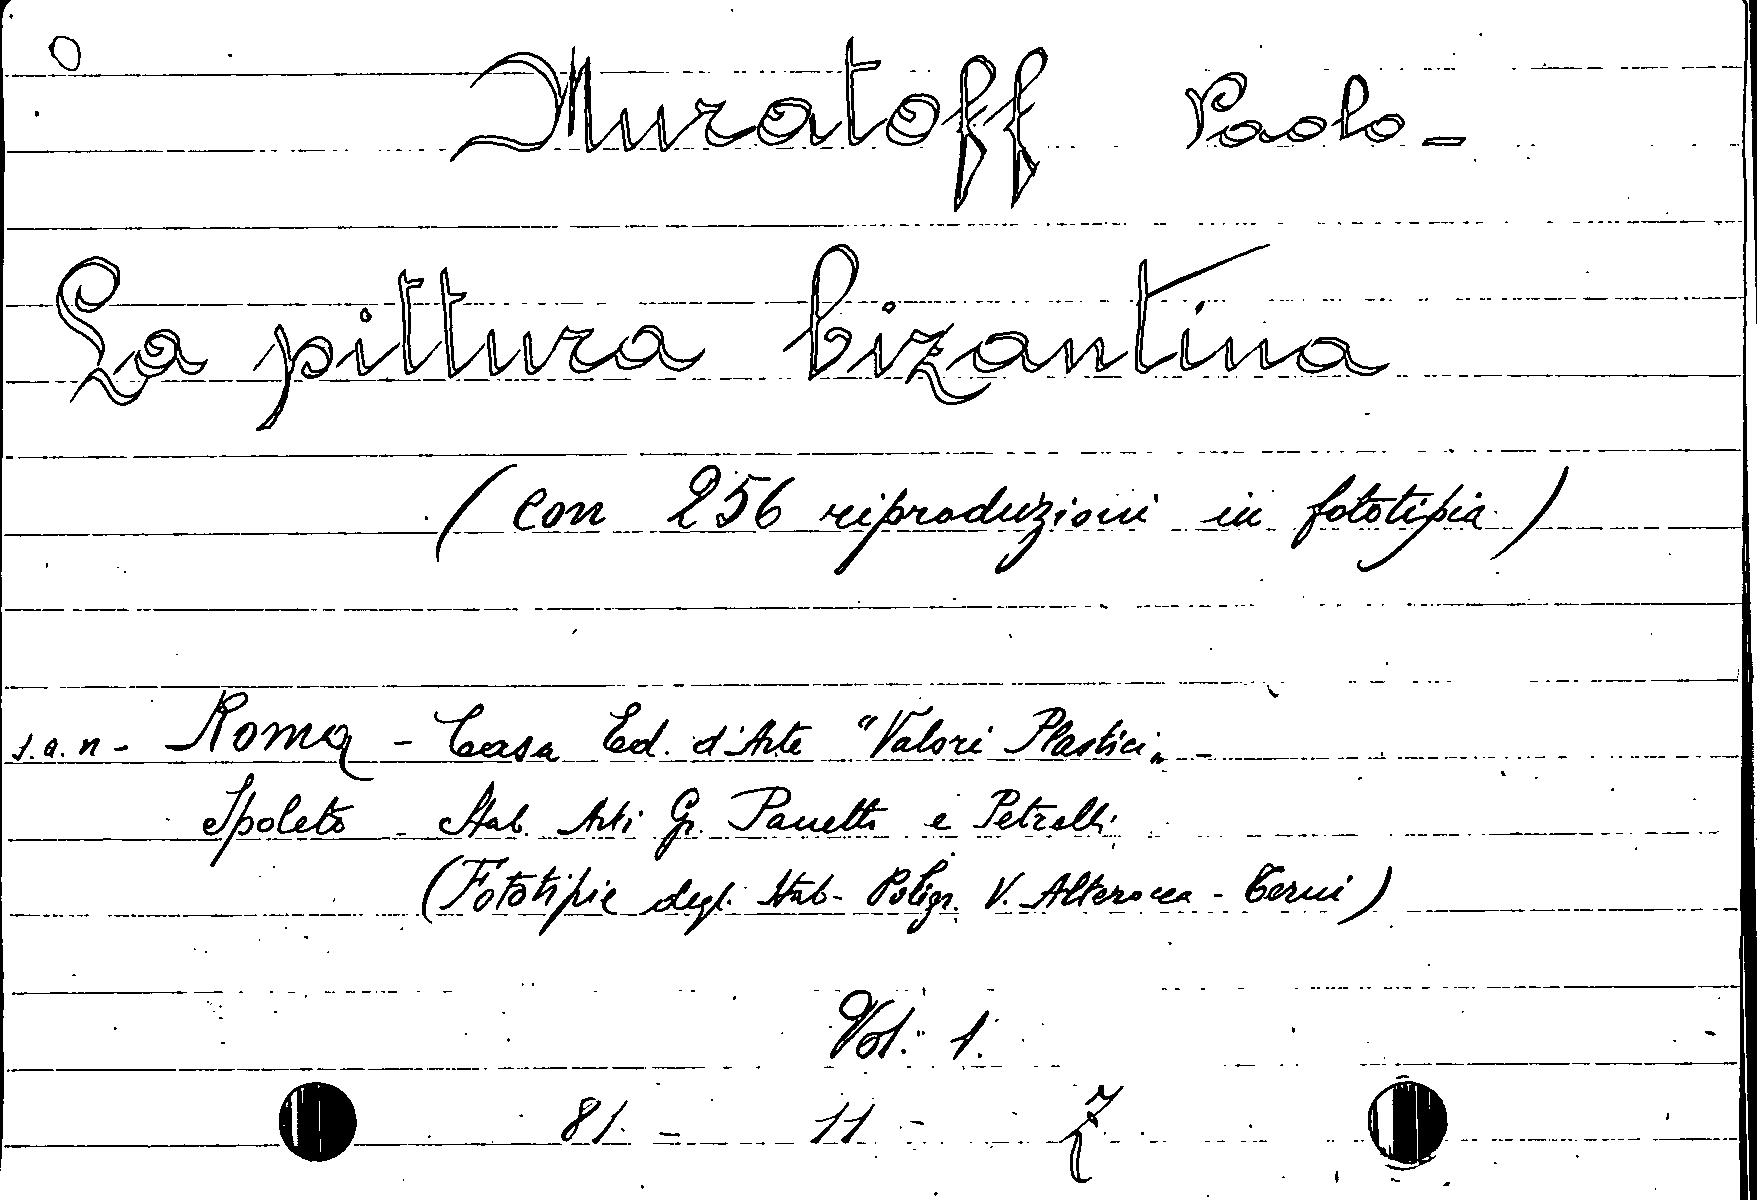 Muratoff Paolo -
La pittura bizantina
(con 256 riproduzioni in fototipia)
s.a.n - Roma - Casa Ed. d'Arte "Valori Plastici" -
Spoleto - Stab. Arti Gr. Panetto e Petrelli
(Fototipie degl. Stab- Poligr. V. Alterocca - Terni)
Vol. 1.
81. - 11 - Z